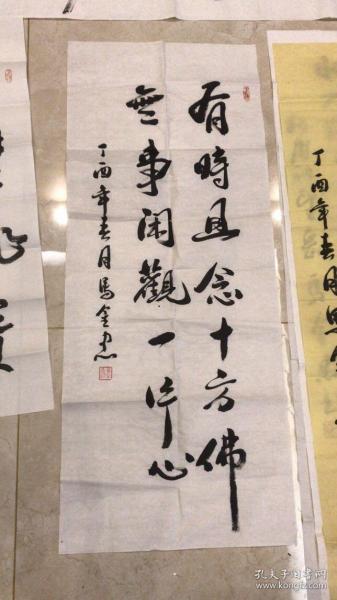 有時且念十方佛
無事閑觀一片心
丁酉年春月馬金忠
丁酉年春月馬金
孔夫子旧书网